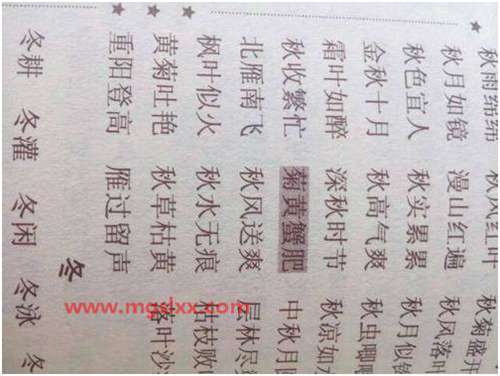 秋雨绵绵 秋风红叶 秋菊盛开
秋月如镜 漫山红遍 秋风落叶
秋色宜人 秋实累累 秋月似
金秋十月 秋高气爽 秋虫唧唧
霜叶如醉 深秋时节 秋凉如水
秋收繁忙 菊黄蟹肥 中秋月
北雁南飞 秋风送爽 层林尽
枫叶似火 秋水无痕 枯枝败
黄菊吐艳 秋草枯黄 落叶沙
重阳登高 雁过留声
冬
冬耕 冬灌 冬闲 冬泳 冬